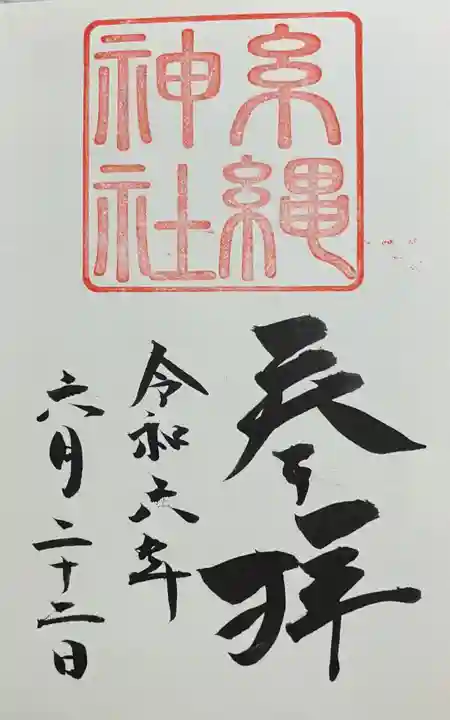 糸縄
神社
奉拝
令和六年
六月二十二日